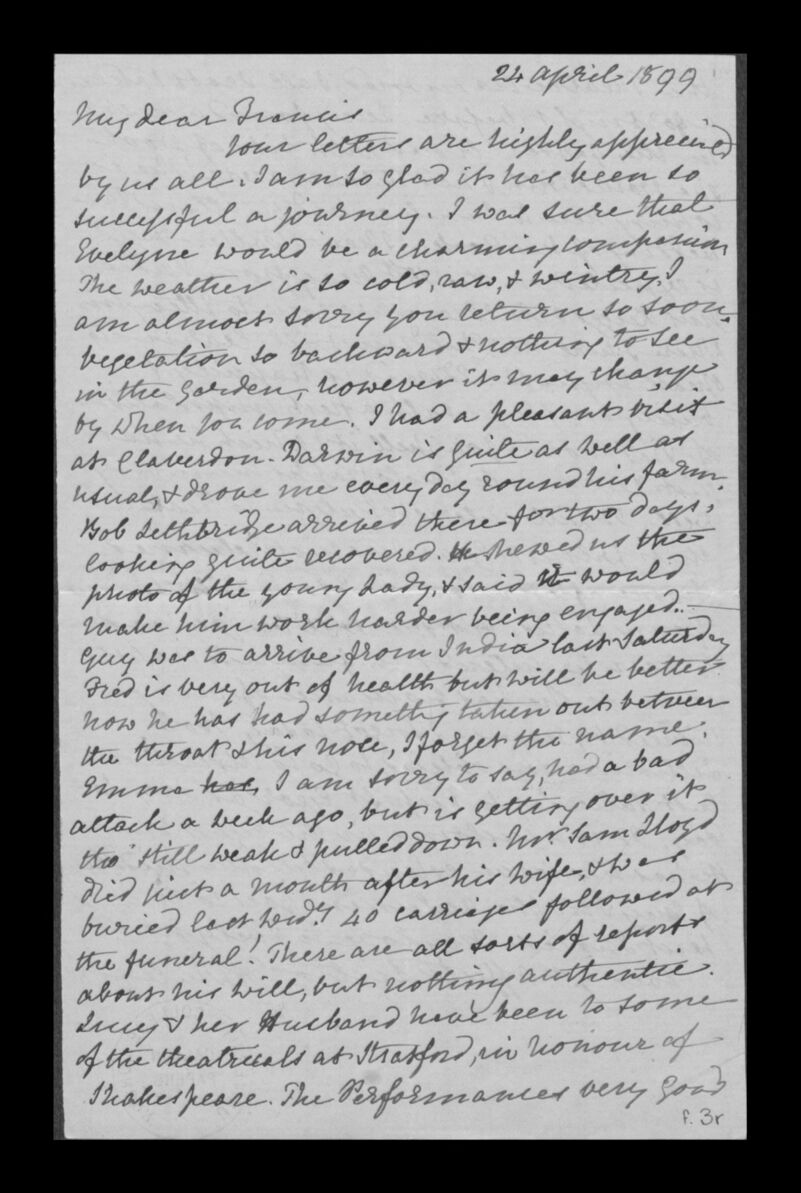 24 April 1899
My dear Francis
Your letters are highly appreciated
by us all. I am so glad it has been so
successful a journey. I was sure that
Evelyne would be a charming companion
The weather is so cold, raw, & wintry, I
am almost sorry you return so soon.
vegetation so backward & nothing to see
in the Garden, however it may change
by when you come. I had a pleasant visit
at Claverdon. Darwin is quite as well as
usual, & drove me every day round his farm.
Bob Lethbridge arrived there for two days,
looking quite recovered. He shewed us the
photo of the young Lady, & said it would
make him work harder being engaged..
Guy was to arrive from India last Saturday
Fred is very out of health but will be better
now he has had something taken out between
the throat & his nose, I forget the name.
Emma has, I am sorry to say, had a bad
attack a week ago, but is getting over it
tho' still weak & pulled down. Mr. Sam Lloyd
died just a month after his wife, & was
buried last Wedy 40 carriages followed at
the funeral! There are all sorts of reports
about his will, but nothing authentic.
Lucy & her Husband have been to some
of the theatricals at Stratford, in honour of
Shakespeare. The Performances very good
f. 3r